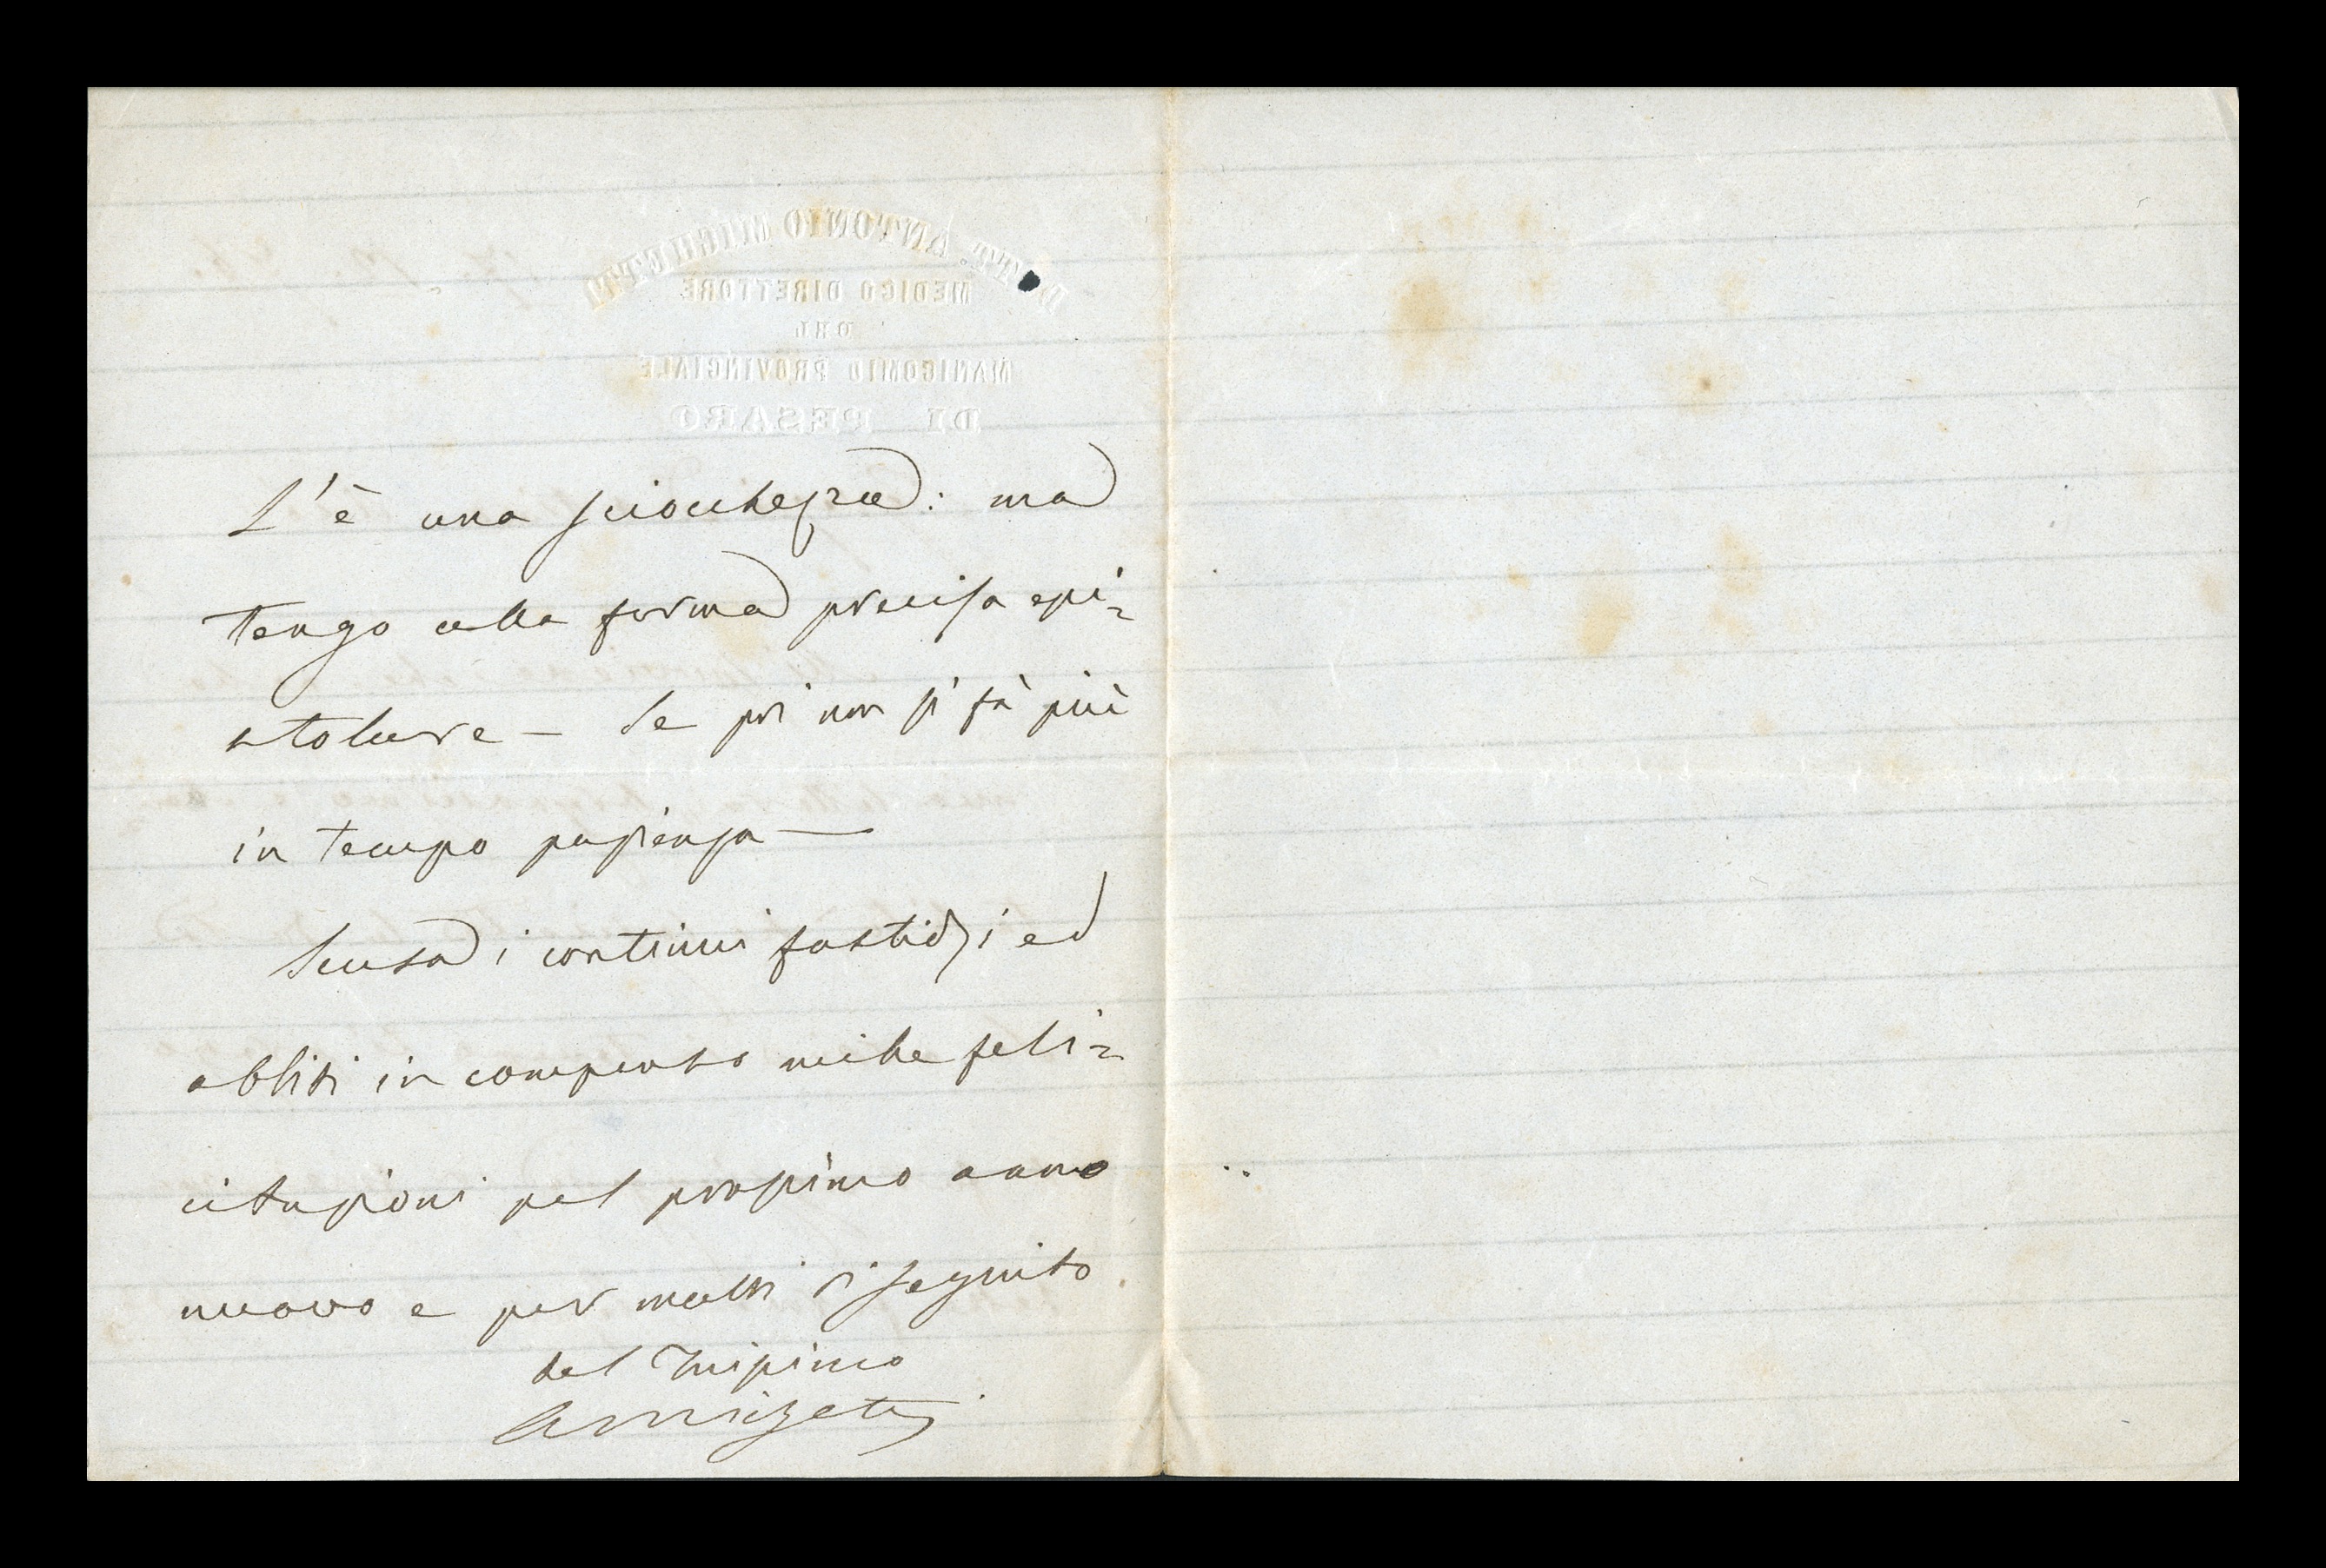 DOTT. ANTONIO MICHETTI
MEDICO DIRETTORE
DEL
MANICOMIO PROVINCIALE
DI PESARO
L'è una sciocchezza: ma
tengo alla forma precisa epi=
stolare – Se poi non si fà più
in tempo pazienza —
Scusa i continui fastidj ed
abbiti in compenso mille feli=
citazioni pel prossimo anno
nuovo e per molti di seguito
del Tuissimo